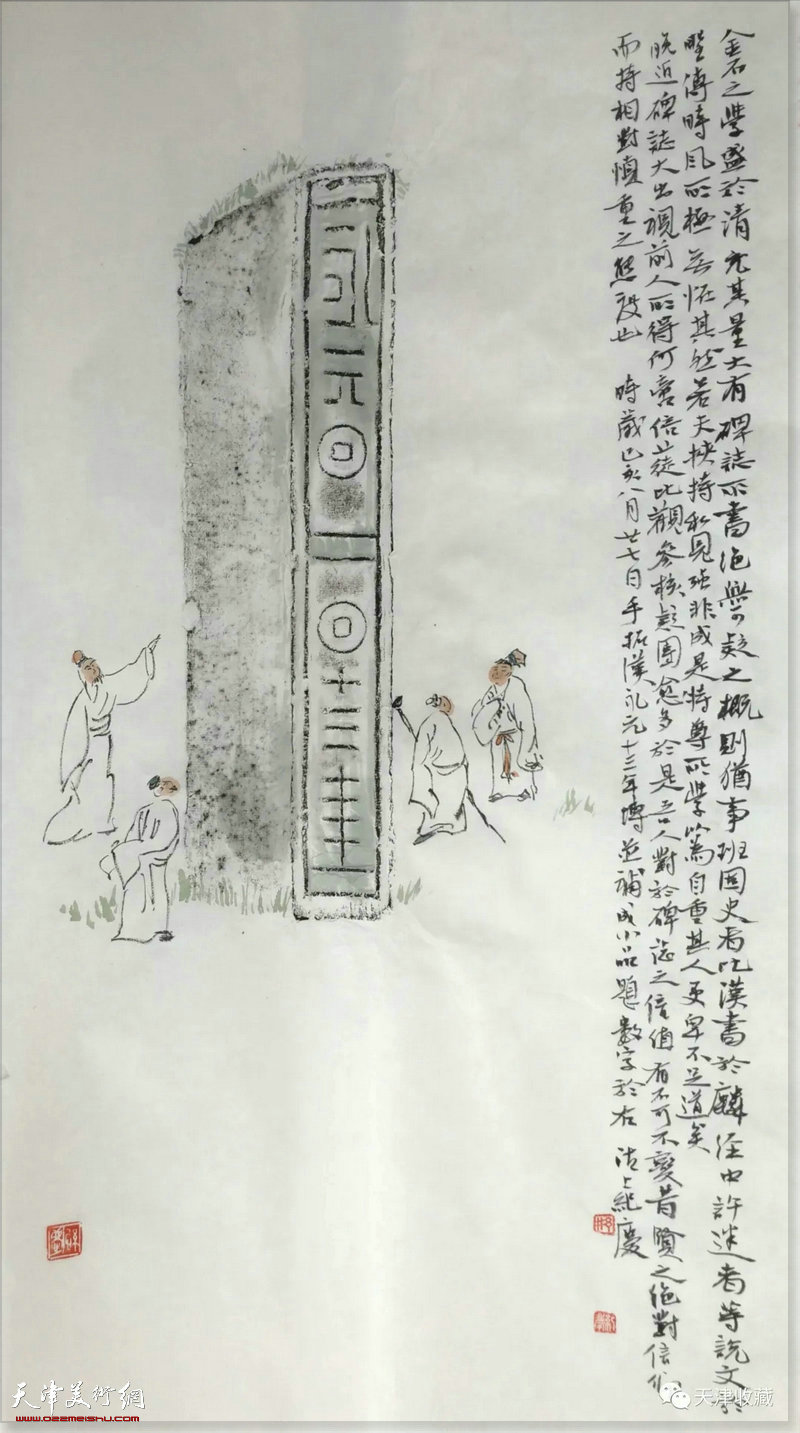 金石之學盛於清尤其量大有碑誌所書絕無可疑之概則猶事班固史者比漢書於麟経中許迷者等說文於
時風所極無怪其然若夫挾持私見強非成是特尊所學以為自重其人更卑不足道矣
晚近碑誌大出視前人所得何啻倍蓰比觀參核疑團愈多於是吾人對於碑誌之信值有不可不變昔賢之絕對信仰
而持相對慎重之態度也 時歲己亥八月廿七日手拓漢永元十三年塼並補成小品題數字於右 沽上 慶
永元
十三
天津美術網
www.022meishu.com
天津收藏